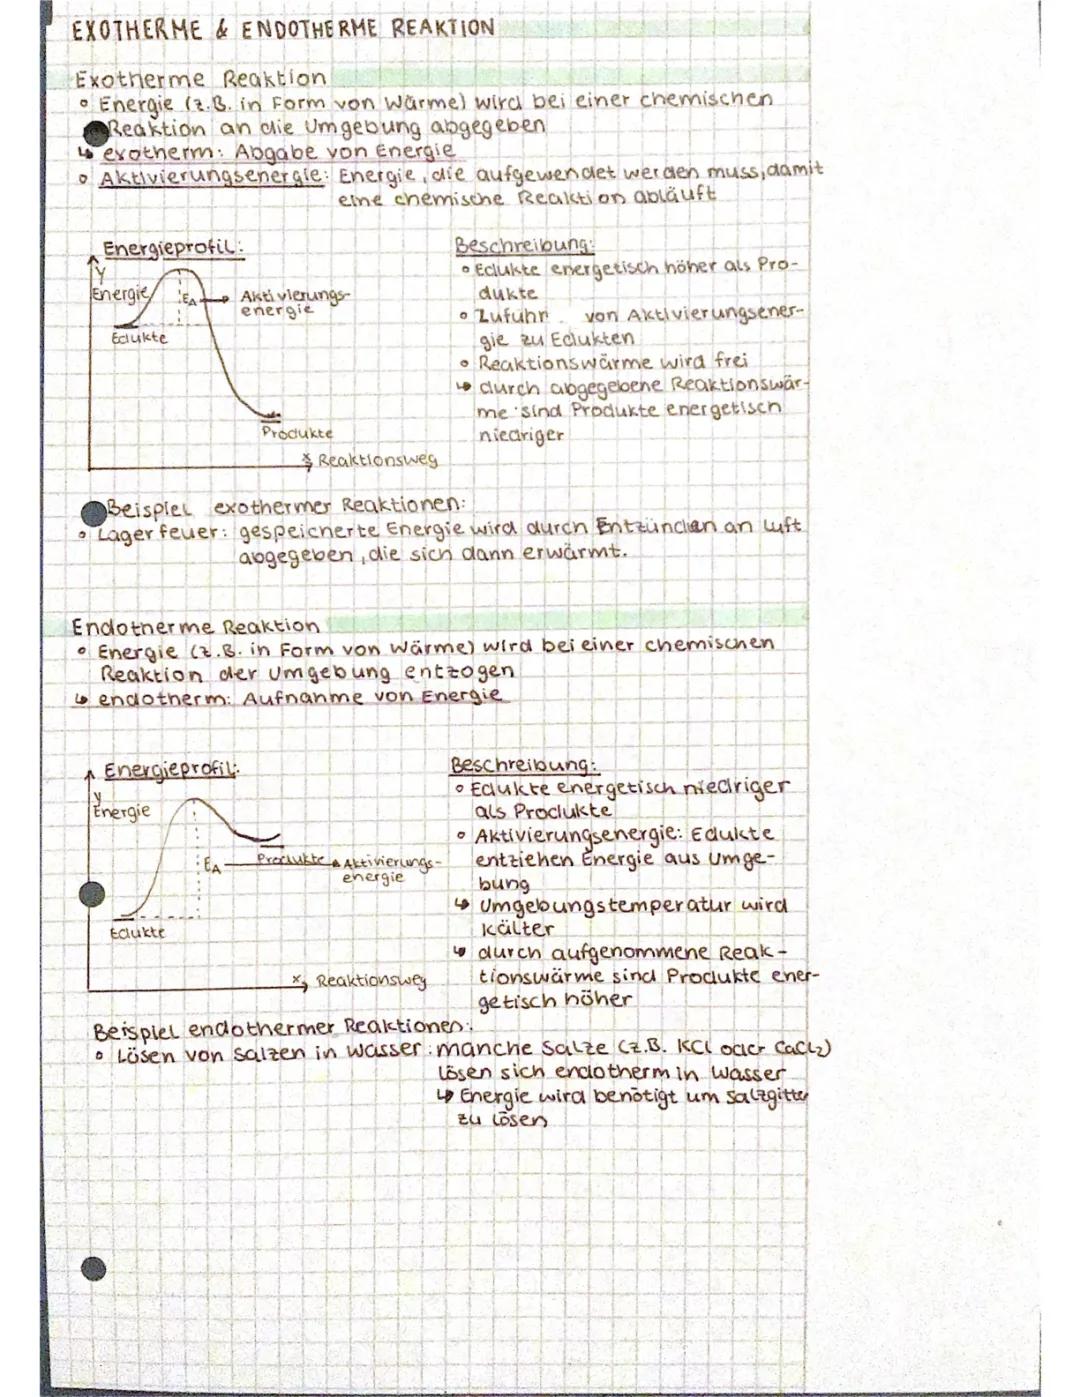 EXOTHERME & ENDOTHERME REAKTION
Exotherme Reaktion
° Energie (z.B. in Form von Wärme) wird bei einer chemischen
Reaktion an die Umgebung abgegeben
↳ exotherm: Abgabe von Energie
° Aktivierungsenergie: Energie, die aufgewendet werden muss, damit
eine chemische Reaktion abläuft
Energieprofil:
Y
Energie
EA → Aktivierungs-
energie
Edukte
Produkte
x Reaktionsweg
Beschreibung:
° Edukte energetisch höher als Pro-
dukte
° Zufuhr von Aktivierungsener-
gie zu Edukten
° Reaktionswärme wird frei
↳ durch abgegebene Reaktionswär-
me sind Produkte energetisch
niedriger
Beispiel exothermer Reaktionen:
° Lagerfeuer: gespeicherte Energie wird durch Entzünden an Luft
abgegeben, die sich dann erwärmt.
Endotherme Reaktion
° Energie (z.B. in Form von Wärme) wird bei einer chemischen
Reaktion der Umgebung entzogen
↳ endotherm: Aufnahme von Energie
Energieprofil:
Y
Energie
EA
Produkte
Aktivierungs-
energie
Edukte
x Reaktionsweg
Beschreibung:
° Edukte energetisch niedriger
als Produkte
° Aktivierungsenergie: Edukte
entziehen Energie aus Umge-
bung
↳ Umgebungstemperatur wird
kälter
↳ durch aufgenommene Reak-
tionswärme sind Produkte ener-
getisch höher
Beispiel endothermer Reaktionen:
° Lösen von Salzen in Wasser: manche Salze (z.B. KCl oder CaCl2)
lösen sich endotherm in Wasser
↳ Energie wird benötigt um Salzgitter
zu lösen